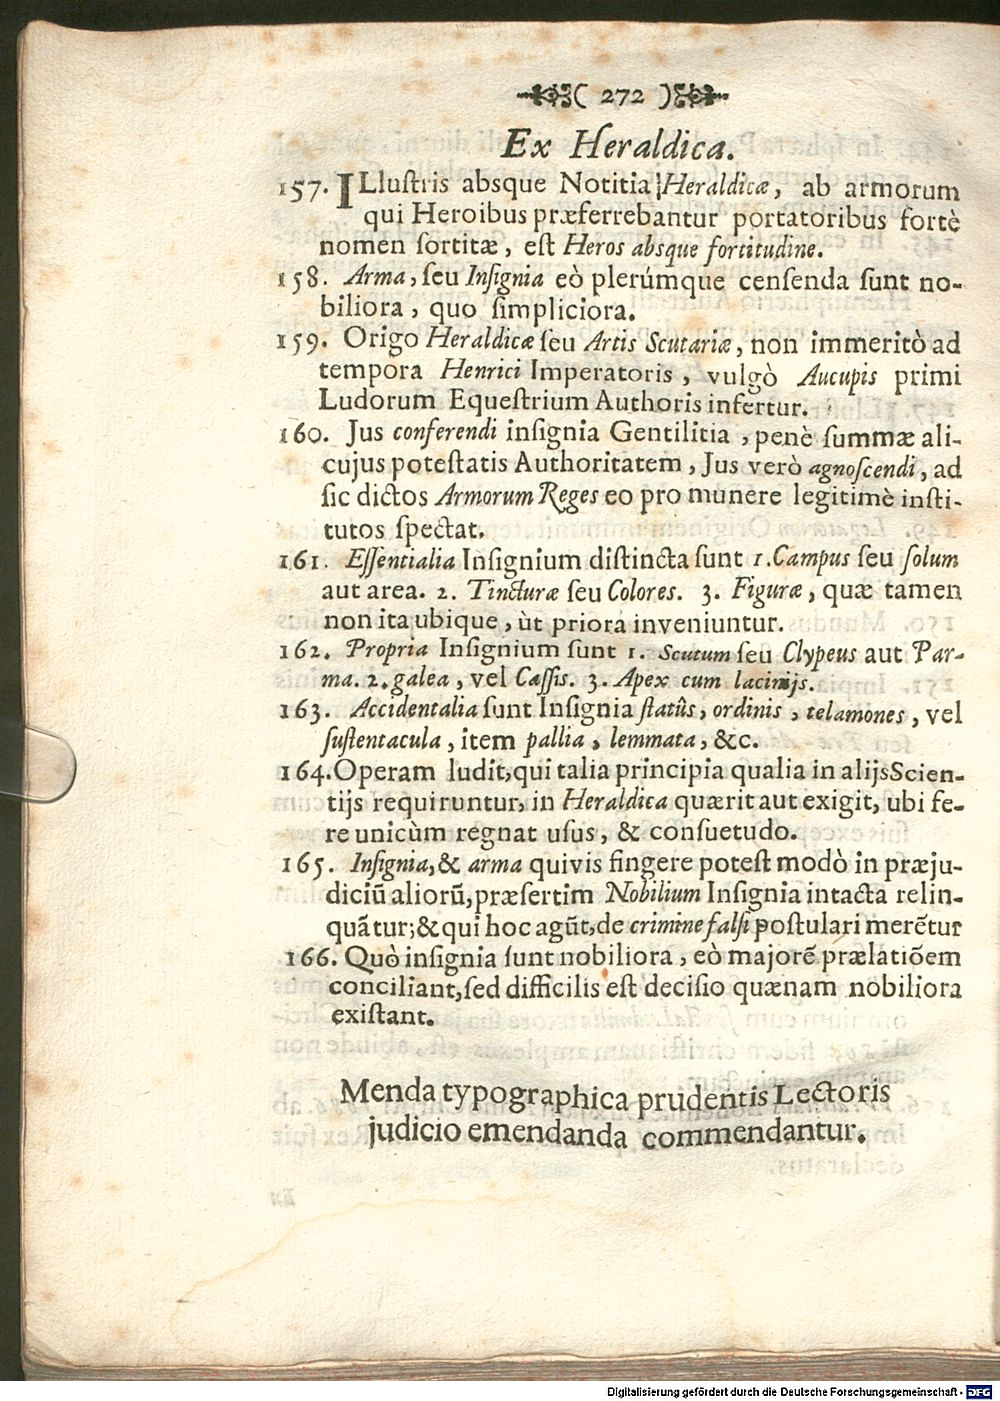 ( 272 )
Ex Heraldica.
157. ILluſtris absque Notitia Heraldicæ, ab armorum
qui Heroibus præferrebantur portatoribus fortè
nomen ſortitæ, eſt Heros absque fortitudine.
158. Arma, ſeu Inſignia eò plerúmque cenſenda ſunt no-
biliora, quo ſimpliciora.
159. Origo Heraldicæ ſeu Artis Scutariæ, non immeritò ad
tempora Henrici Imperatoris, vulgò Aucupis primi
Ludorum Equeſtrium Authoris infertur.
160. Jus conferendi inſignia Gentilitia, penè ſummæ ali-
cujus poteſtatis Authoritatem, Jus verò agnoſcendi, ad
ſic dictos Armorum Reges eo pro munere legitimè inſti-
tutos ſpectat.
161. Eſſentialia Inſignium diſtincta ſunt 1. Campus ſeu ſolum
aut area. 2. Tincturæ ſeu Colores. 3. Figuræ, quæ tamen
non ita ubique, ùt priora inveniuntur.
162. Propria Inſignium ſunt 1. Scutum ſeu Clypeus aut Par-
ma. 2. galea, vel Caſſis. 3. Apex cum lacinijs.
163. Accidentalia ſunt Inſignia ſtatûs, ordinis, telamones, vel
ſuſtentacula, item pallia, lemmata, &c.
164. Operam ludit, qui talia principia qualia in alijs Scien-
tijs requiruntur, in Heraldica quærit aut exigit, ubi fe-
re unicùm regnat uſus, & conſuetudo.
165. Inſignia, & arma quivis fingere poteſt modò in præju-
diciũ aliorũ, præſertim Nobilium Inſignia intacta relin-
quãtur; & qui hoc agũt, de crimine falſi poſtulari merẽtur
166. Quò inſignia ſunt nobiliora, eò majorẽ prælatiõem
conciliant, ſed difficilis eſt deciſio quænam nobiliora
exiſtant.
Menda typographica prudentis Lectoris
judicio emendanda commendantur.
Digitalisierung gefördert durch die Deutsche Forschungsgemeinschaft - DFG